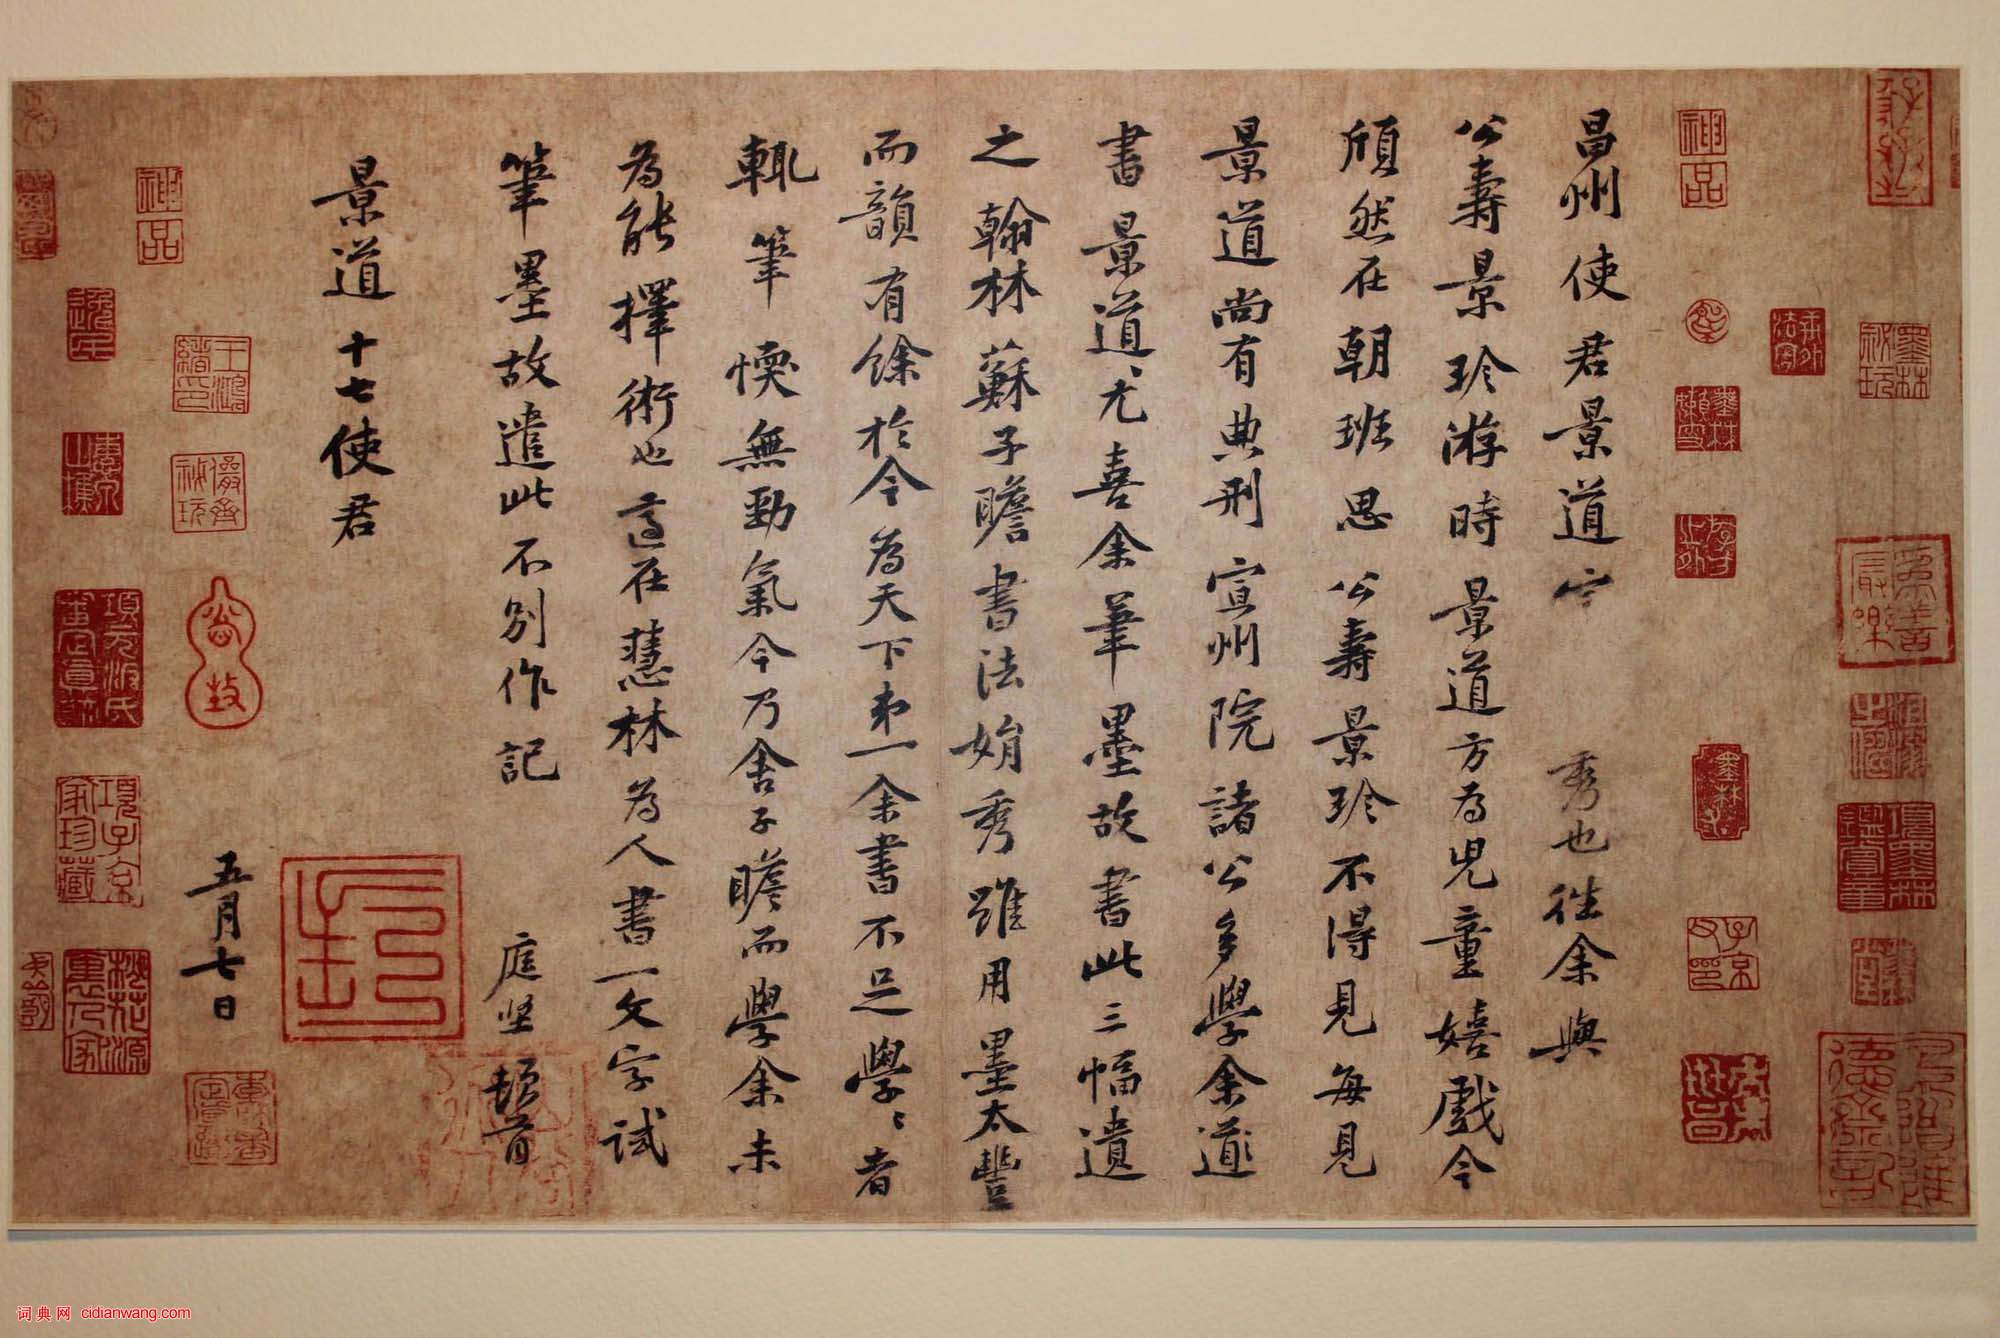 昌州使君景道宗秀也往余與
公壽景珍游時景道方為兒童嬉戲今
頎然在朝班思公壽景珍不得見每見
景道尚有典刑宣州院諸公多學余
書景道尤喜余筆墨故書此三幅遺
之翰林蘇子瞻書法娟秀雖用墨太豐
而韻有餘於今為天下弟一余書不足學學者
輒筆愞無勁氣今乃舍子瞻而學余未
為能擇術也適在慧林為人書一文字試
筆墨故遣此不別作記
庭堅頓首
景道十七使君
五月七日
神品
神品
墨林祕玩
項元汴氏審定真跡
項子京家珍藏
桃花源裏人家
子京父印
項墨林鑑賞章
词典网 cidianwang.com